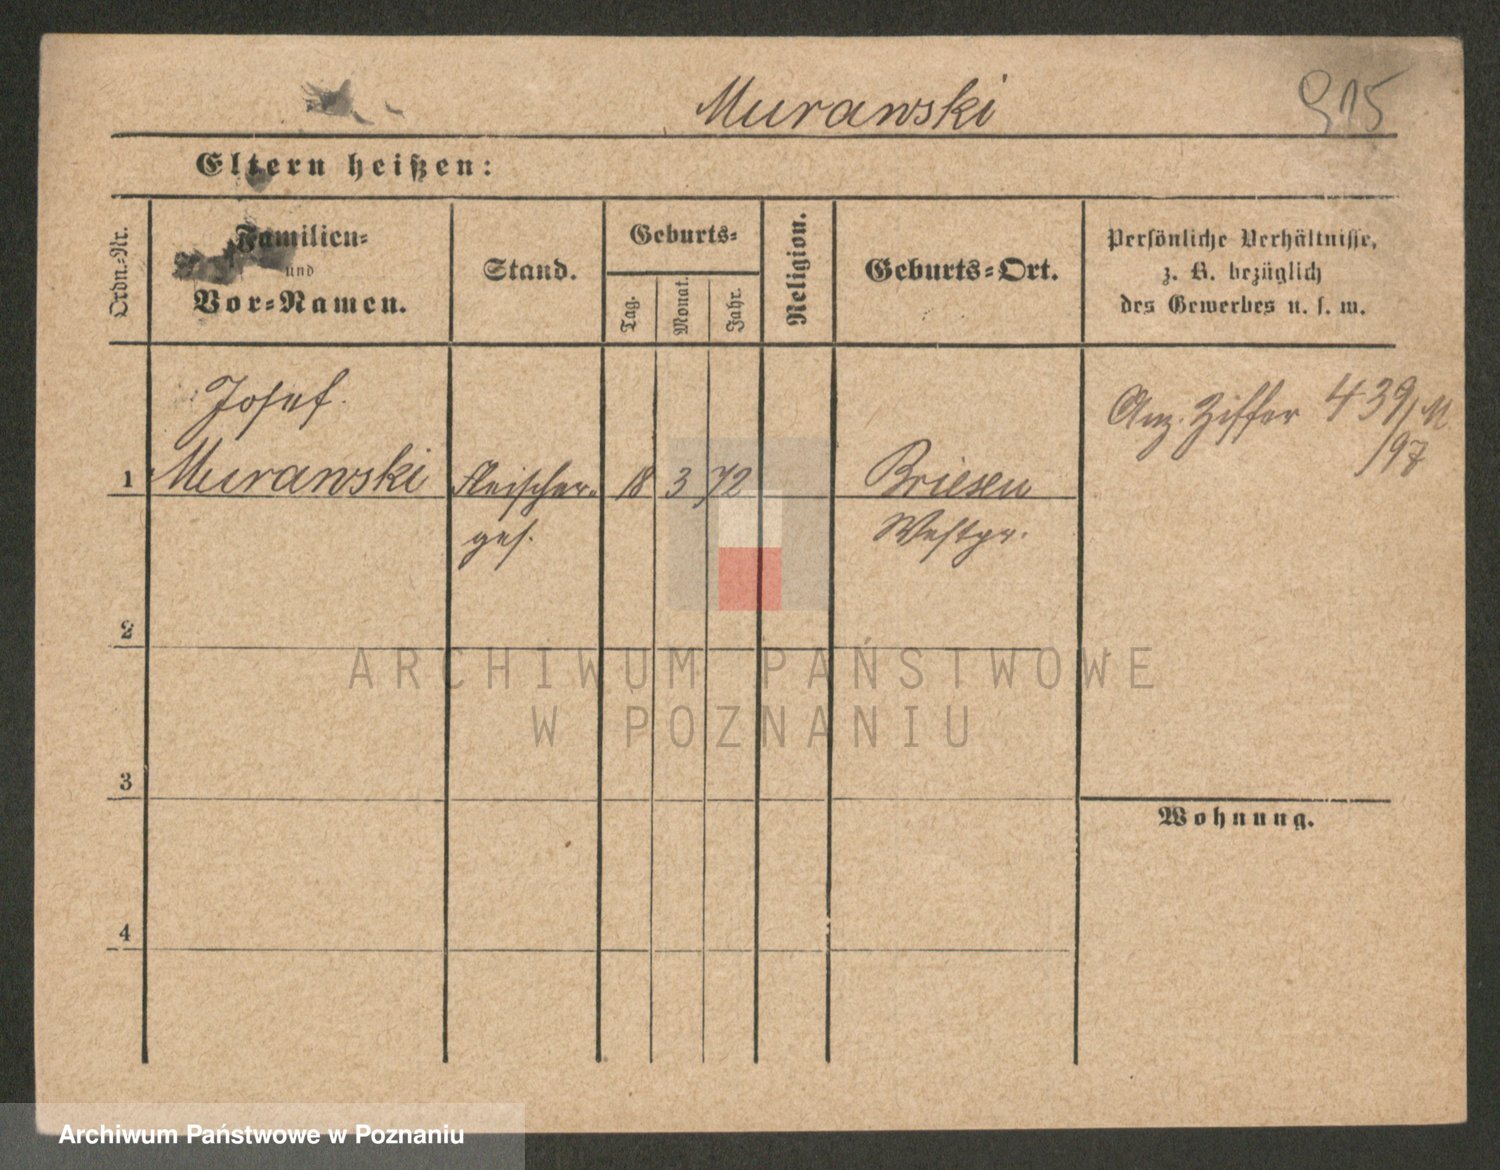 Murawski 915
Eltern heißen:
Ordn.-Nr.
Familien-
und
Vor-Namen.
Stand.
Geburts-
Tag.
Monat.
Jahr.
Religion.
Geburts-Ort.
Persönliche Verhältnisse,
z. B. bezüglich
des Gewerbes u. s. w.
Josef
1 Murawski Fleischer- 18 3 72 Briesen
ges. Westpr.
Anz. Ziffer 439/M
/97
2
3
Wohnung.
4
ARCHIWUM PAŃSTWOWE
W POZNANIU
Archiwum Państwowe w Poznaniu